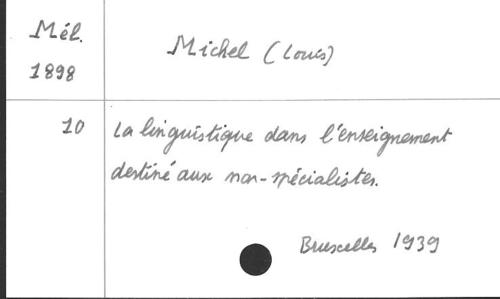 Mél.
1898
Michel (Louis)
10
La linguistique dans l'enseignement
destiné aux non-spécialistes.
Bruxelles 1939